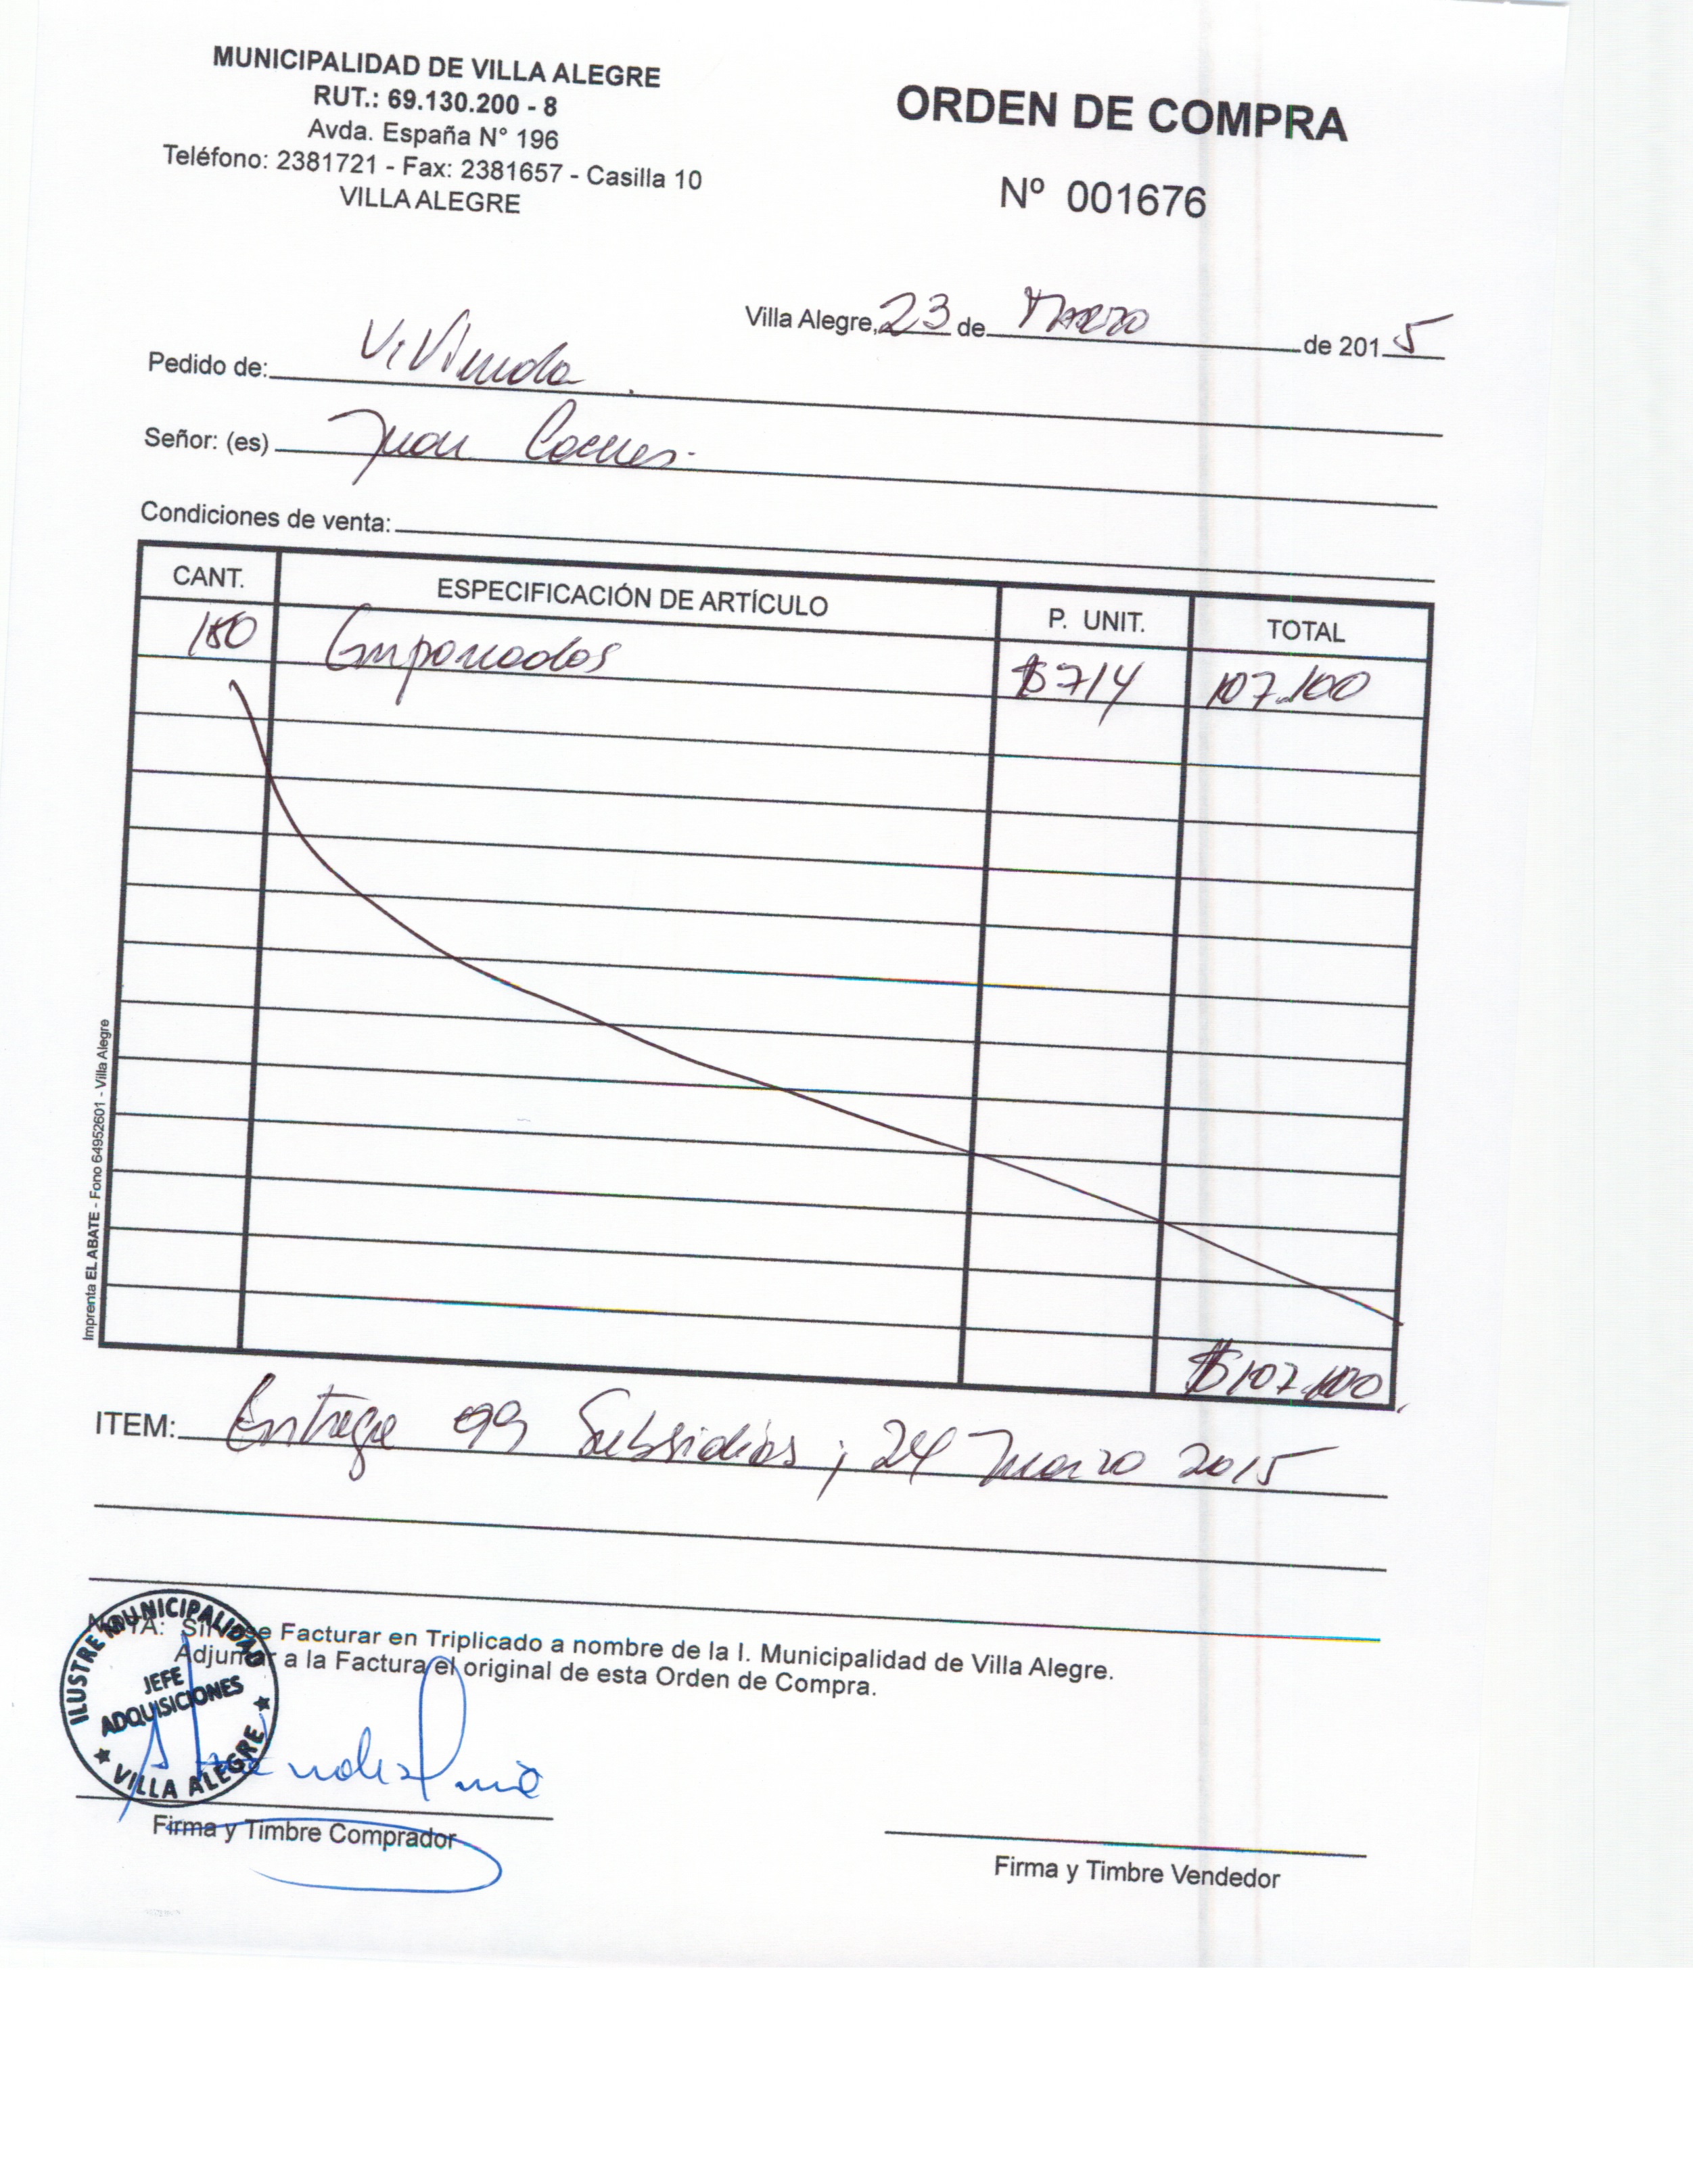 MUNICIPALIDAD DE VILLA ALEGRE
RUT.: 69.130.200 - 8
Avda. España N° 196
Teléfono: 2381721 - Fax: 2381657 - Casilla 10
VILLA ALEGRE
ORDEN DE COMPRA
Nº 001676
Villa Alegre, 23 de Marzo de 2015
Pedido de: Vivienda.
Señor: (es) Juan
Condiciones de venta:
CANT. ESPECIFICACIÓN DE ARTÍCULO P. UNIT. TOTAL
150 Empanadas $714 107.100
$107.100
ITEM: Entrega 99 Subsidios; 24 Marzo 2015
NOTA: Sirvase Facturar en Triplicado a nombre de la I. Municipalidad de Villa Alegre.
Adjuntar a la Factura el original de esta Orden de Compra.
ILUSTRE MUNICIPALIDAD
JEFE
ADQUISICIONES
★ VILLA ALEGRE ★
Firma y Timbre Comprador
Firma y Timbre Vendedor
Imprenta EL ABATE - Fono 64952601 - Villa Alegre